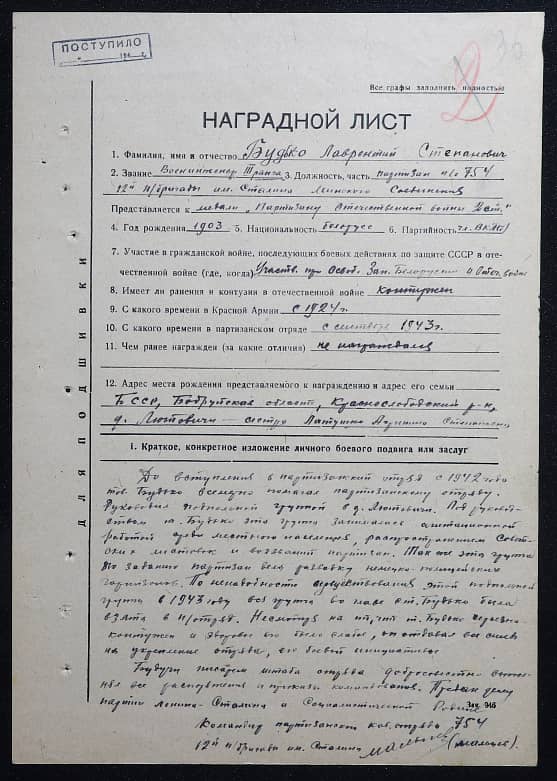 ПОСТУПИЛО
2
Все графы заполнить полностью
НАГРАДНОЙ ЛИСТ
1. Фамилия, имя и отчество Будько Лаврентий Степанович
2. Звание Военинженер 3 ранга 3. Должность, часть партизан п/о 754
12й п/бригады им. Сталина Минского Соединения
Представляется к медали „Партизану Отечественной войны 2 ст."
4. Год рождения 1903 5. Национальность белорус 6. Партийность чл. ВКП(б)
7. Участие в гражданской войне, последующих боевых действиях по защите СССР в оте-
чественной войне (где, когда) Участв. при освоб. Зап. Белоруссии и Отеч. войне
8. Имеет ли ранения и контузии в отечественной войне контужен
9. С какого времени в Красной Армии с 1924 г.
10. С какого времени в партизанском отряде с сентября 1943 г.
11. Чем ранее награжден (за какие отличия) не награждался
12. Адрес места рождения представляемого к награждению и адрес его семьи
БССР, Бобруйская область, Краснослободский р-н,
д. Лютовичи – сестра Латушко Степановна
I. Краткое, конкретное изложение личного боевого подвига или заслуг
До вступления в партизанский отряд с 1942 года
тов. Будько всемерно помогал партизанскому отряду.
Руководил подпольной группой в д. Лютовичи. Под руковод-
ством т. Будько эта группа занималась агитационной
работой среди местного населения, распространением Совет-
ских листовок и воззваний партизан. Так же эта группа
по заданию партизан вела разведку немецко-полицейских
гарнизонов. По ненадобности существования этой подпольной
группы в 1943 году вся группа во главе с т. Будько была
взята в п/отряд. Несмотря на то, что т. Будько
контужен и здоровье его было слабо, он отдавал все силы
на укрепление отряда, его боевой инициативы.
Будучи писарем штаба отряда добросовестно выпол-
нял все распоряжения и приказы командования. Предан делу
партии Ленина-Сталина и Социалистической Родине.
Зак. 946
Командир партизанского отряда 754
12й п/бригады им. Сталина
ДЛЯ ПОДШИВКИ